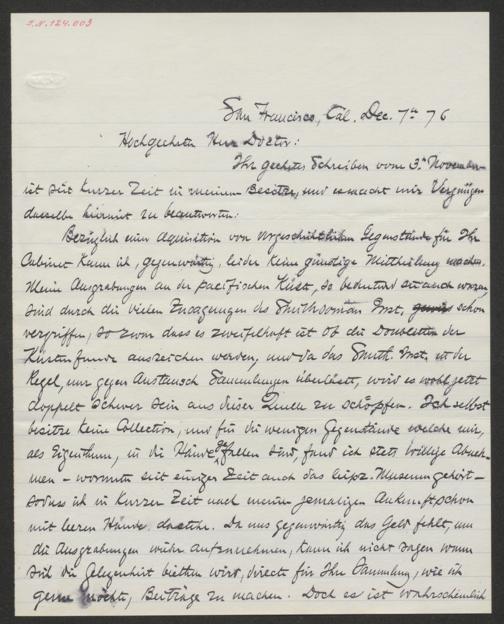 I.N. 124.003
San Francisco, Cal. Dec. 7th 76
Hochgeehrter Herr Doctor:
Ihr geehrtes Schreiben vom 3n November
ist seit kurzer Zeit in meinem Besitze, und es macht mir Vergnügen
dasselbe hiermit zu beantworten:
Bezüglich einer Aquisition von vorgeschichtlichen Gegenstände für Ihr
Cabinet kann ich, gegenwärtig, leider keine günstige Mittheilung machen.
Meine Ausgrabungen an der pacifischen Küste, so bedeutend sie auch waren,
sind durch die vielen Zusagungen des Smithsonian Inst. schon
vergriffen, so zwar dass es zweifelhaft ist ob die Doubletten der
Küstenfunde ausreichen werden, und da das Smith. Inst. in der
Regel, nur gegen Austausch Sammlungen überlässt, wird es wohl jetzt
doppelt schwer sein aus dieser Quelle zu schöpfen. Ich selbst
besitze keine Collection, und für die wenigen Gegenstände welche mir,
als Eigenthum, in die Hände gefallen sind, fand ich stets willige Abneh-
mer – worunter seit einiger Zeit auch das Leipz. Museum gehört –
sodass ich in kurzer Zeit nach meiner jemaligen Ankunft schon
mit leeren Hände dastehe. Da uns gegenwärtig das Geld fehlt, um
die Ausgrabungen wieder aufzunehmen, kann ich nicht sagen wann
sich die Gelegenheit bietten wird, direct für Ihr Sammlung, wie ich
gerne möchte, Beiträge zu machen. Doch es ist wahrscheinlich